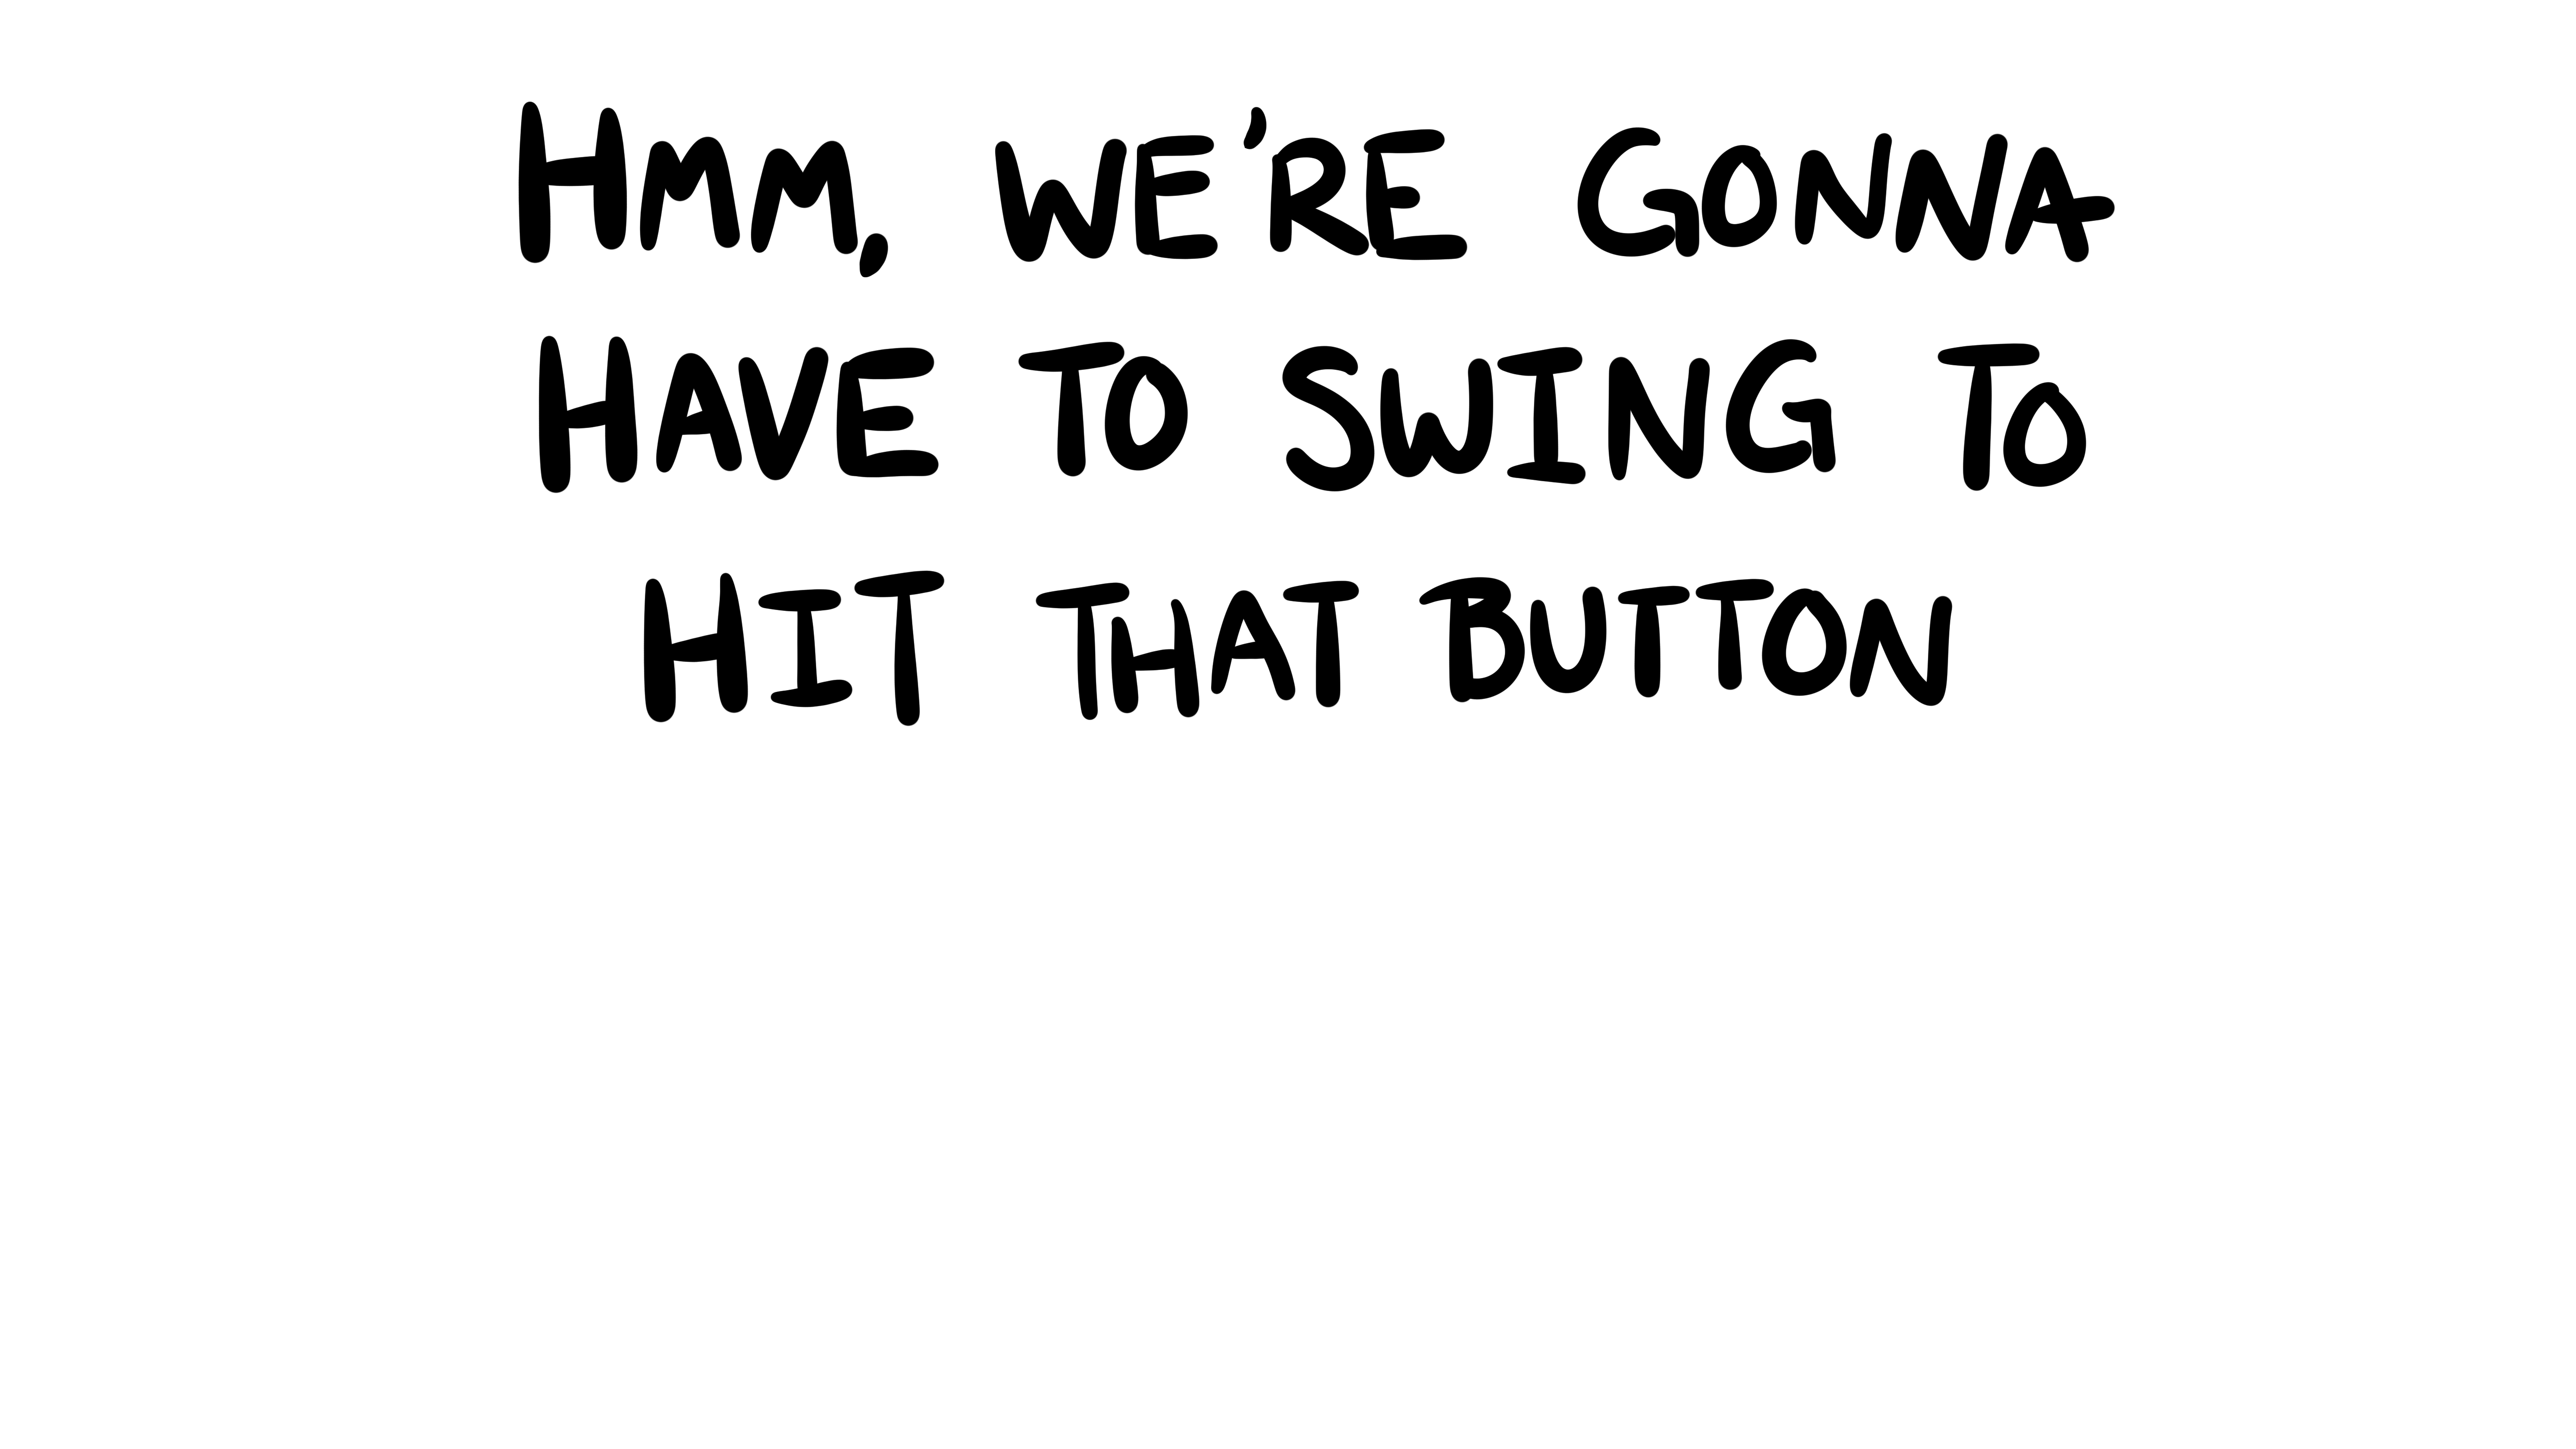 HMM, WE'RE GONNA
HAVE TO SWING TO
HIT THAT BUTTON